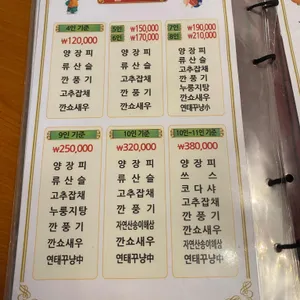 4인 기준
₩120,000
양장피
류산슬
고추잡채
깐풍기
깐쇼새우
5인 ₩150,000
6인 ₩170,000
양장피
류산슬
고추잡채
깐풍기
깐쇼새우
7인 ₩190,000
8인 ₩210,000
양장피
류산슬
고추잡채
깐풍기
누룽지탕
깐쇼새우
연태꾸냥小
9인 기준
₩250,000
양장피
류산슬
고추잡채
누룽지탕
깐풍기
깐쇼새우
연태꾸냥中
10인 기준
₩320,000
양장피
류산슬
고추잡채
깐풍기
자연산송이해삼
깐쇼새우
연태꾸냥中
10인~11인 기준
₩380,000
양장피
쯔스
코다샤
고추잡채
자연산송이해삼
깐쇼새우
연태꾸냥中